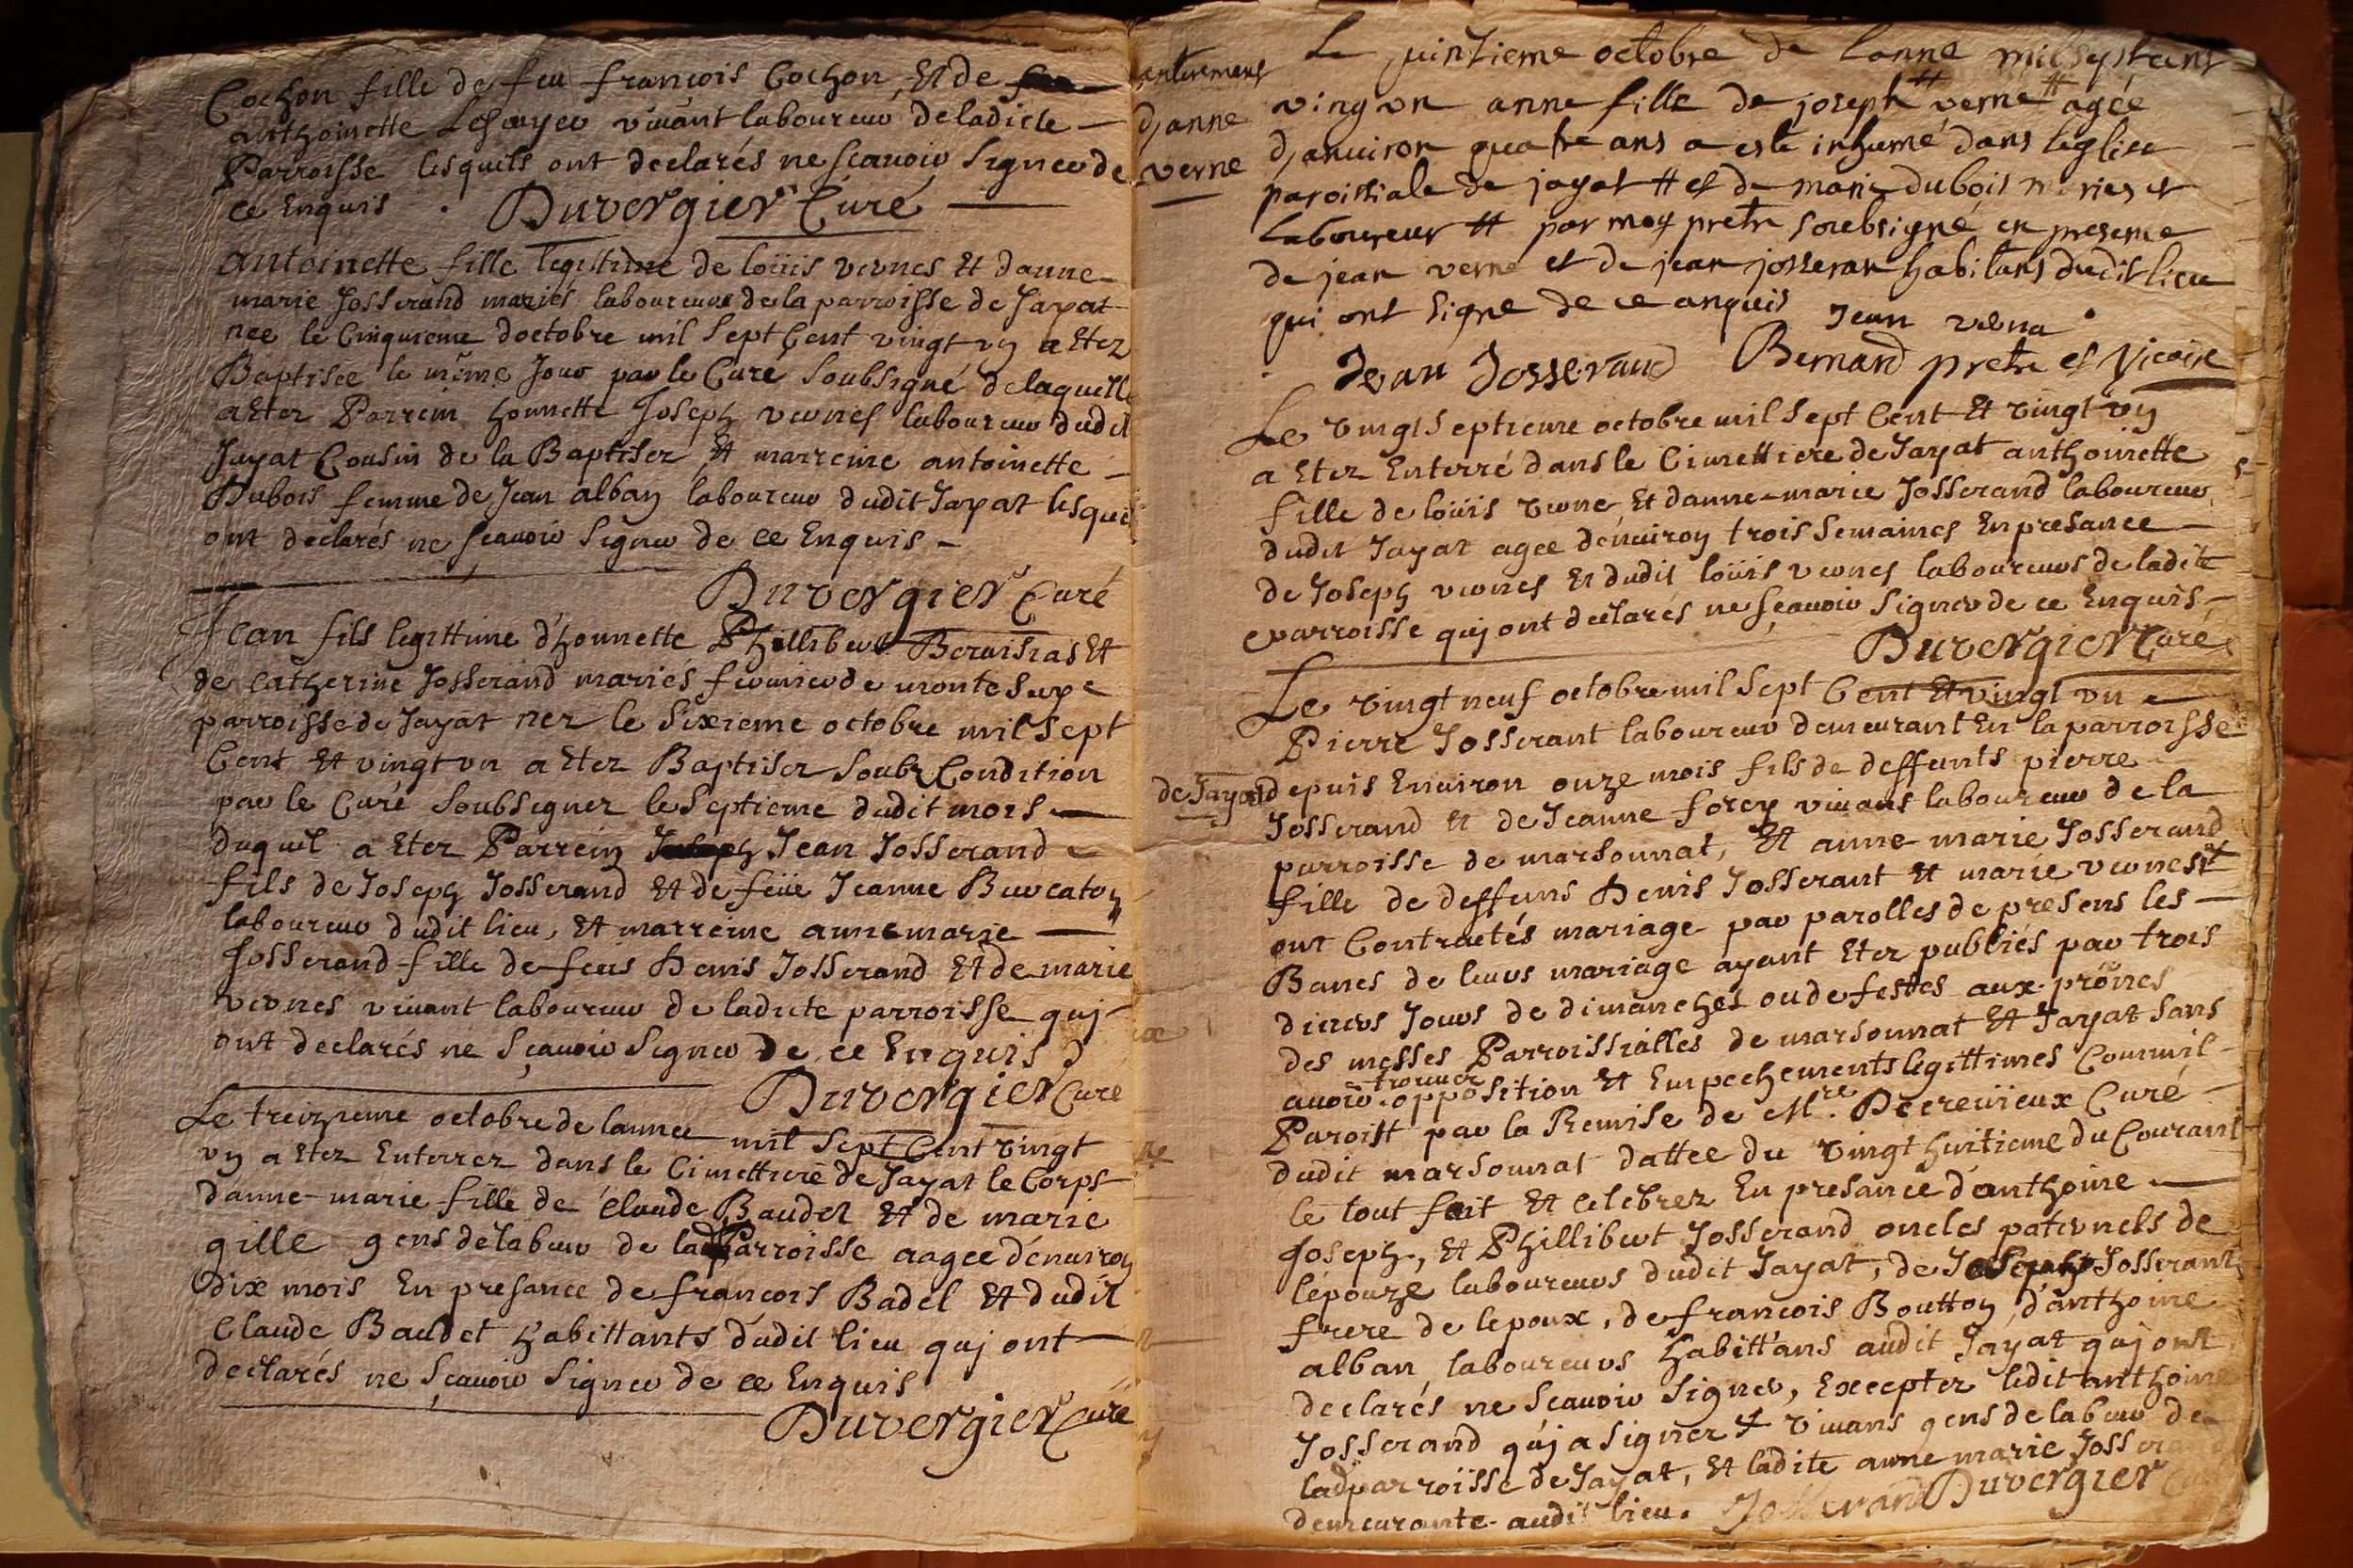 Cochon fille de feu françois Cochon, Et de
anthoinette Lesouyeu viuant laboureur deladicte
Parroisse lesquels ont declarés ne scauoir signer de
ce Enquis . Duvergier Curé
antoinette fille legitime de loüis vernes Et danne
marie Josserand mariés laboureurs dela parroisse de Jayat
née le Cinquieme doctobre mil sept Cent vingt vn a Etez
Baptisée le même Jour par le Curé soubsigné de laquelle
a Etez Parrein honnette Joseph vernes laboureur dudit
Jayat Cousin de la Baptisez Et marreine antoinette
Dubois femme de Jean alban laboureur dudit Jayat lesquels
ont declarés ne scauoir signer de ce Enquis
Duvergier Curé
Jean fils legittime d'honnette Phillibert Beruisias Et
de Catherine Josserand mariés fermier de monte
parroisse de Jayat nez le sixieme octobre mil sept
Cent Et vingt vn a Etez Baptisez soubz Condition
par le Curé soubsignez le septieme dudit mois
duquel a Etez Parrein Jean Josserand
fils de Joseph Josserand Et de feüe Jeanne Buvcaton
laboureur dudit lieu, Et marreine anne marie
Josserand fille de feus Denis Josserand Et de marie
vernes viuant laboureur de ladicte parroisse quj
ont declarés ne sçauoir signer de ce Enquis
Duvergier Curé
Le treizieme octobre de lannee mil sept Cent vingt
vn a Etez Enterrez dans le Cimettiere de Jayat le Corps
d'anne-marie fille de Claude Baudet Et de marie
gille gens de labeur de lad Parroisse aagee d'enuiron
dix mois En presance de françois Badel Et dudit
Claude Baudet habittants dudit lieu quj ont
declarés ne sçauoir signer de ce Enquis
Duvergier Curé
anterement
d'anne
verne
Le quinzieme octobre de lanne mil sept cent
ving vn anne fille de joseph # verne # agée
d'anuiron quatre ans a esté inhumé dans leglise
paroissiale de jayat # et de marie dubois maries et
laboureur # par moy pretre soubsigné en presence
de jean verne et de jean josseran habitans dudit lieu
qui ont signe de ce anquis Jean verna
Jean Josserand Bernard pretre et vicaire
Le vingt septieme octobre mil sept Cent Et vingt vn
a Etez Enterré dans le Cimettiere de Jayat anthoinette
fille de loüis verne, Et danne-marie Josserand laboureur
dudit Jayat agee denuiron trois semaines En presance
de Joseph vernes Et dudit loüis vernes laboureurs de ladite
parroisse quj ont declarés ne sçauoir signer de ce Enquis
Duvergier Curé
Le vingt neuf octobre mil sept Cent Et vingt vn
Pierre Josserant laboureur demeurant En la parroisse
de Jayat depuis Enuiron onze mois fils de deffunts pierre
Josserand Et de Jeanne forey viuans laboureur de la
parroisse de marsonnat, Et anne-marie Josserand
fille de deffuns Denis Josserant Et marie vernes #
ont Contractés mariage par parolles de presens les
Banes de leurs mariage ayant Etez publiés par trois
diuers Jours de dimanches ou de festes aux prônes
des messes Parroissialles de marsonnat Et Jayat sans
auoir trouuez opposition Et Empechements legittimes Comme il
Paroist par la Remise de Mre. Decreüieux Curé
dudit marsonnat dattee du vingt huitieme du Courant
le tout fait Et Celebrez En presance danthoine
Joseph, Et Phillibert Josserand oncles paternels de
lépouze laboureurs dudit Jayat, de Joseph Josserant
frere de lepoux, de francois Boutton, d'anthoine
alban laboureurs habittans audit Jayat quj ont
declarés ne scauoir signer, Exceptez ledit anthoine
Josserand quj a signer # viuans gens de labeur de
lad parroisse de Jayat, Et ladite anne marie Josserand
demeurante audit lieu. Josserand Duvergier